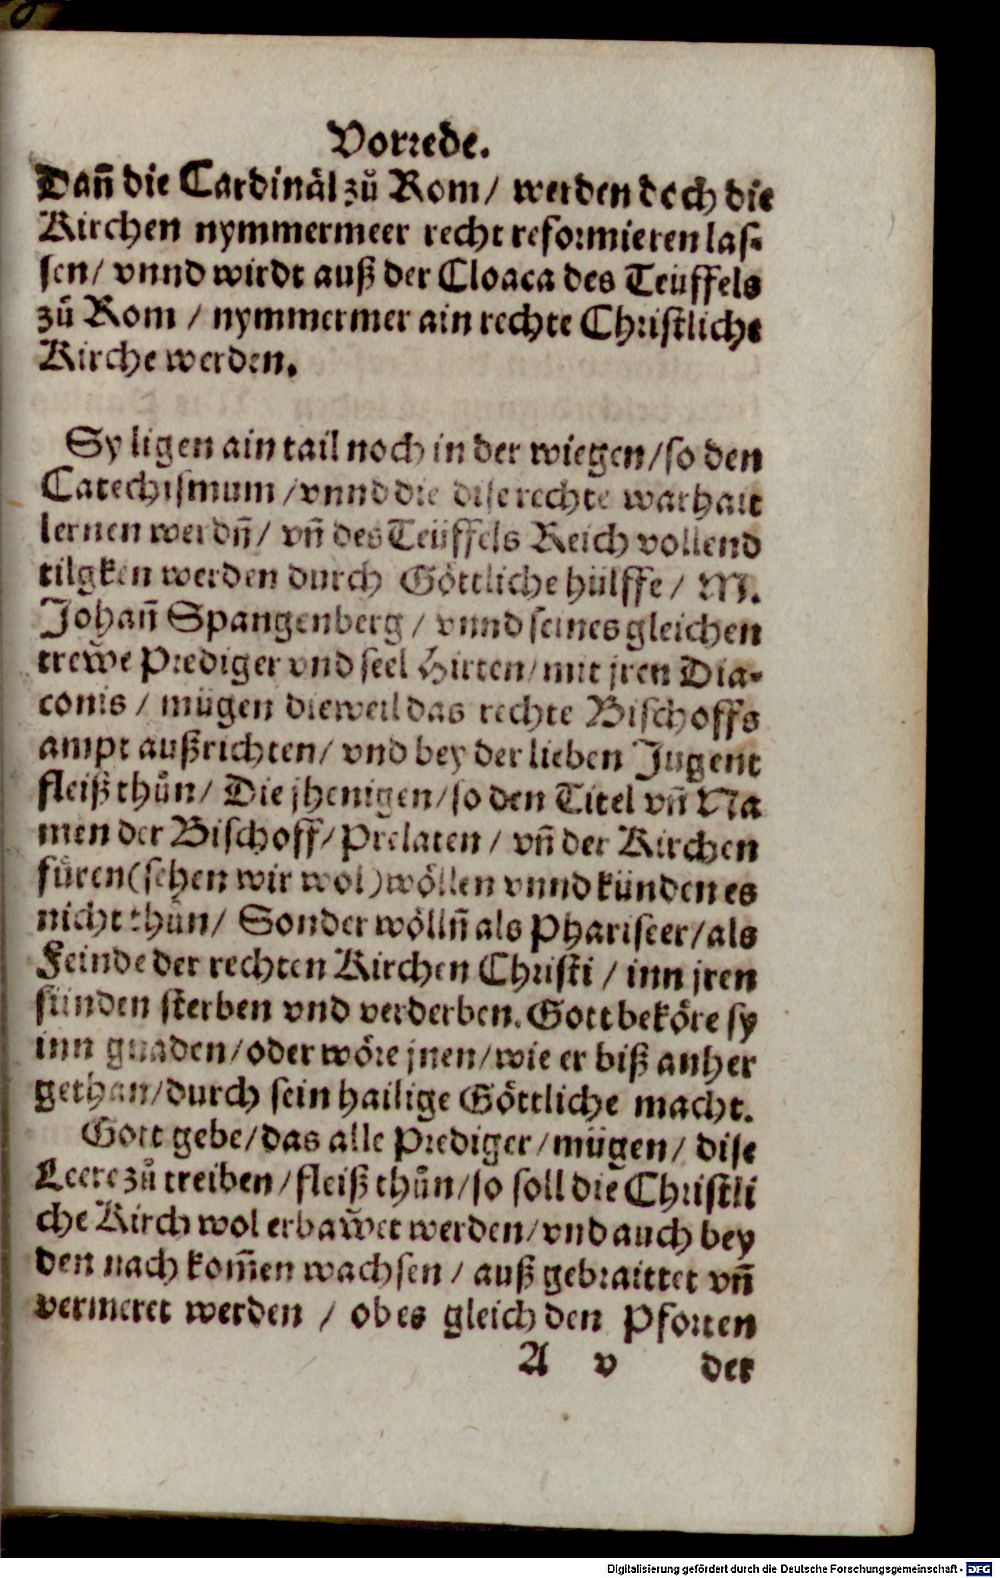 Vorrede.
Dañ die Cardinäl zů Rom/ werden doch die
Kirchen nymmermeer recht reformieren las-
sen/ vnnd wirdt auß der Cloaca des Teüffels
zů Rom / nymmermer ain rechte Christliche
Kirche werden.
Sy ligen ain tail noch in der wiegen/so den
Catechismum /vnnd die dise rechte warhait
lernen werdñ/ vñ des Teüffels Reich vollend
tilgken werden durch Göttliche hülffe/ M.
Johañ Spangenberg / vnnd seines gleichen
trewe Prediger vnd seel Hirten/mit jren Dia-
conis / mügen dieweil das rechte Bischoffs
ampt außrichten/ vnd bey der lieben Jugent
fleiß thůn/ Die jhenigen/so den Titel vñ Na
men der Bischoff/Prelaten / vñ der Kirchen
fůren(sehen wir wol)wöllen vnnd künden es
nicht thůn/ Sonder wöllñ als Phariseer/als
Feinde der rechten Kirchen Christi / inn jren
sünden sterben vnd verderben. Gott beköre sy
inn gnaden/oder wöre jnen/wie er biß anher
gethan/durch sein hailige Göttliche macht.
Gott gebe/das alle Prediger/mügen/ dise
Leere zů treiben/fleiß thůn/so soll die Christli
che Kirch wol erbawet werden/vnd auch bey
den nach kom̃en wachsen / auß gebraittet vñ
vermeret werden / ob es gleich den Pforten
A v der
Digitalisierung gefördert durch die Deutsche Forschungsgemeinschaft - DFG